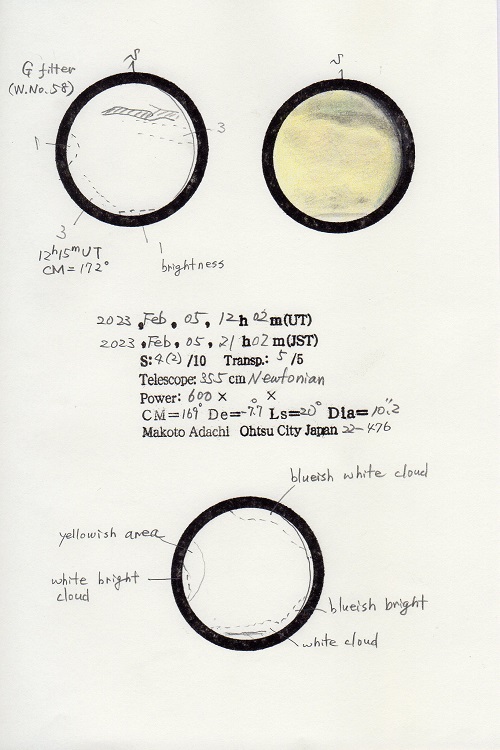 S
G filter
(W.No.58)
1
3
3
1
12h15mUT
CM=172°
brightness
S
2023, Feb, 05, 12h 02m(UT)
2023, Feb, 05, 21h02m(JST)
S:4(2)/10 Transp.: 5/5
Telescope: 355cm Newtonian
Power: 600× ×
CM=169° De=-7.7° Ls=20° Dia=10".2
Makoto Adachi Ohtsu City Japan 22-476
blueish white cloud
yellowish area
white bright
cloud
blueish bright
white cloud